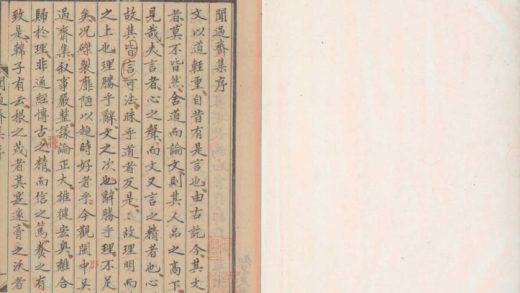 聞過齋集序
文以道輕重自昔有是言也由古訖今其文
者莫不皆然舍道而論文則其人品之高下
見哉夫言者心之聲而文又言之精者也心
故其皆言可法昧乎道者反是故理明而
之上也理勝乎辭文之次也辭勝乎理不足
矣况磔裂靡陋以趨時好者乎今觀閩中吴
過齋集叙事嚴整議論正大雄健宏奥離合
歸於理非通經博古之精而信之篤養之有
致是韓子有云根之茂者其實遂膏之沃者